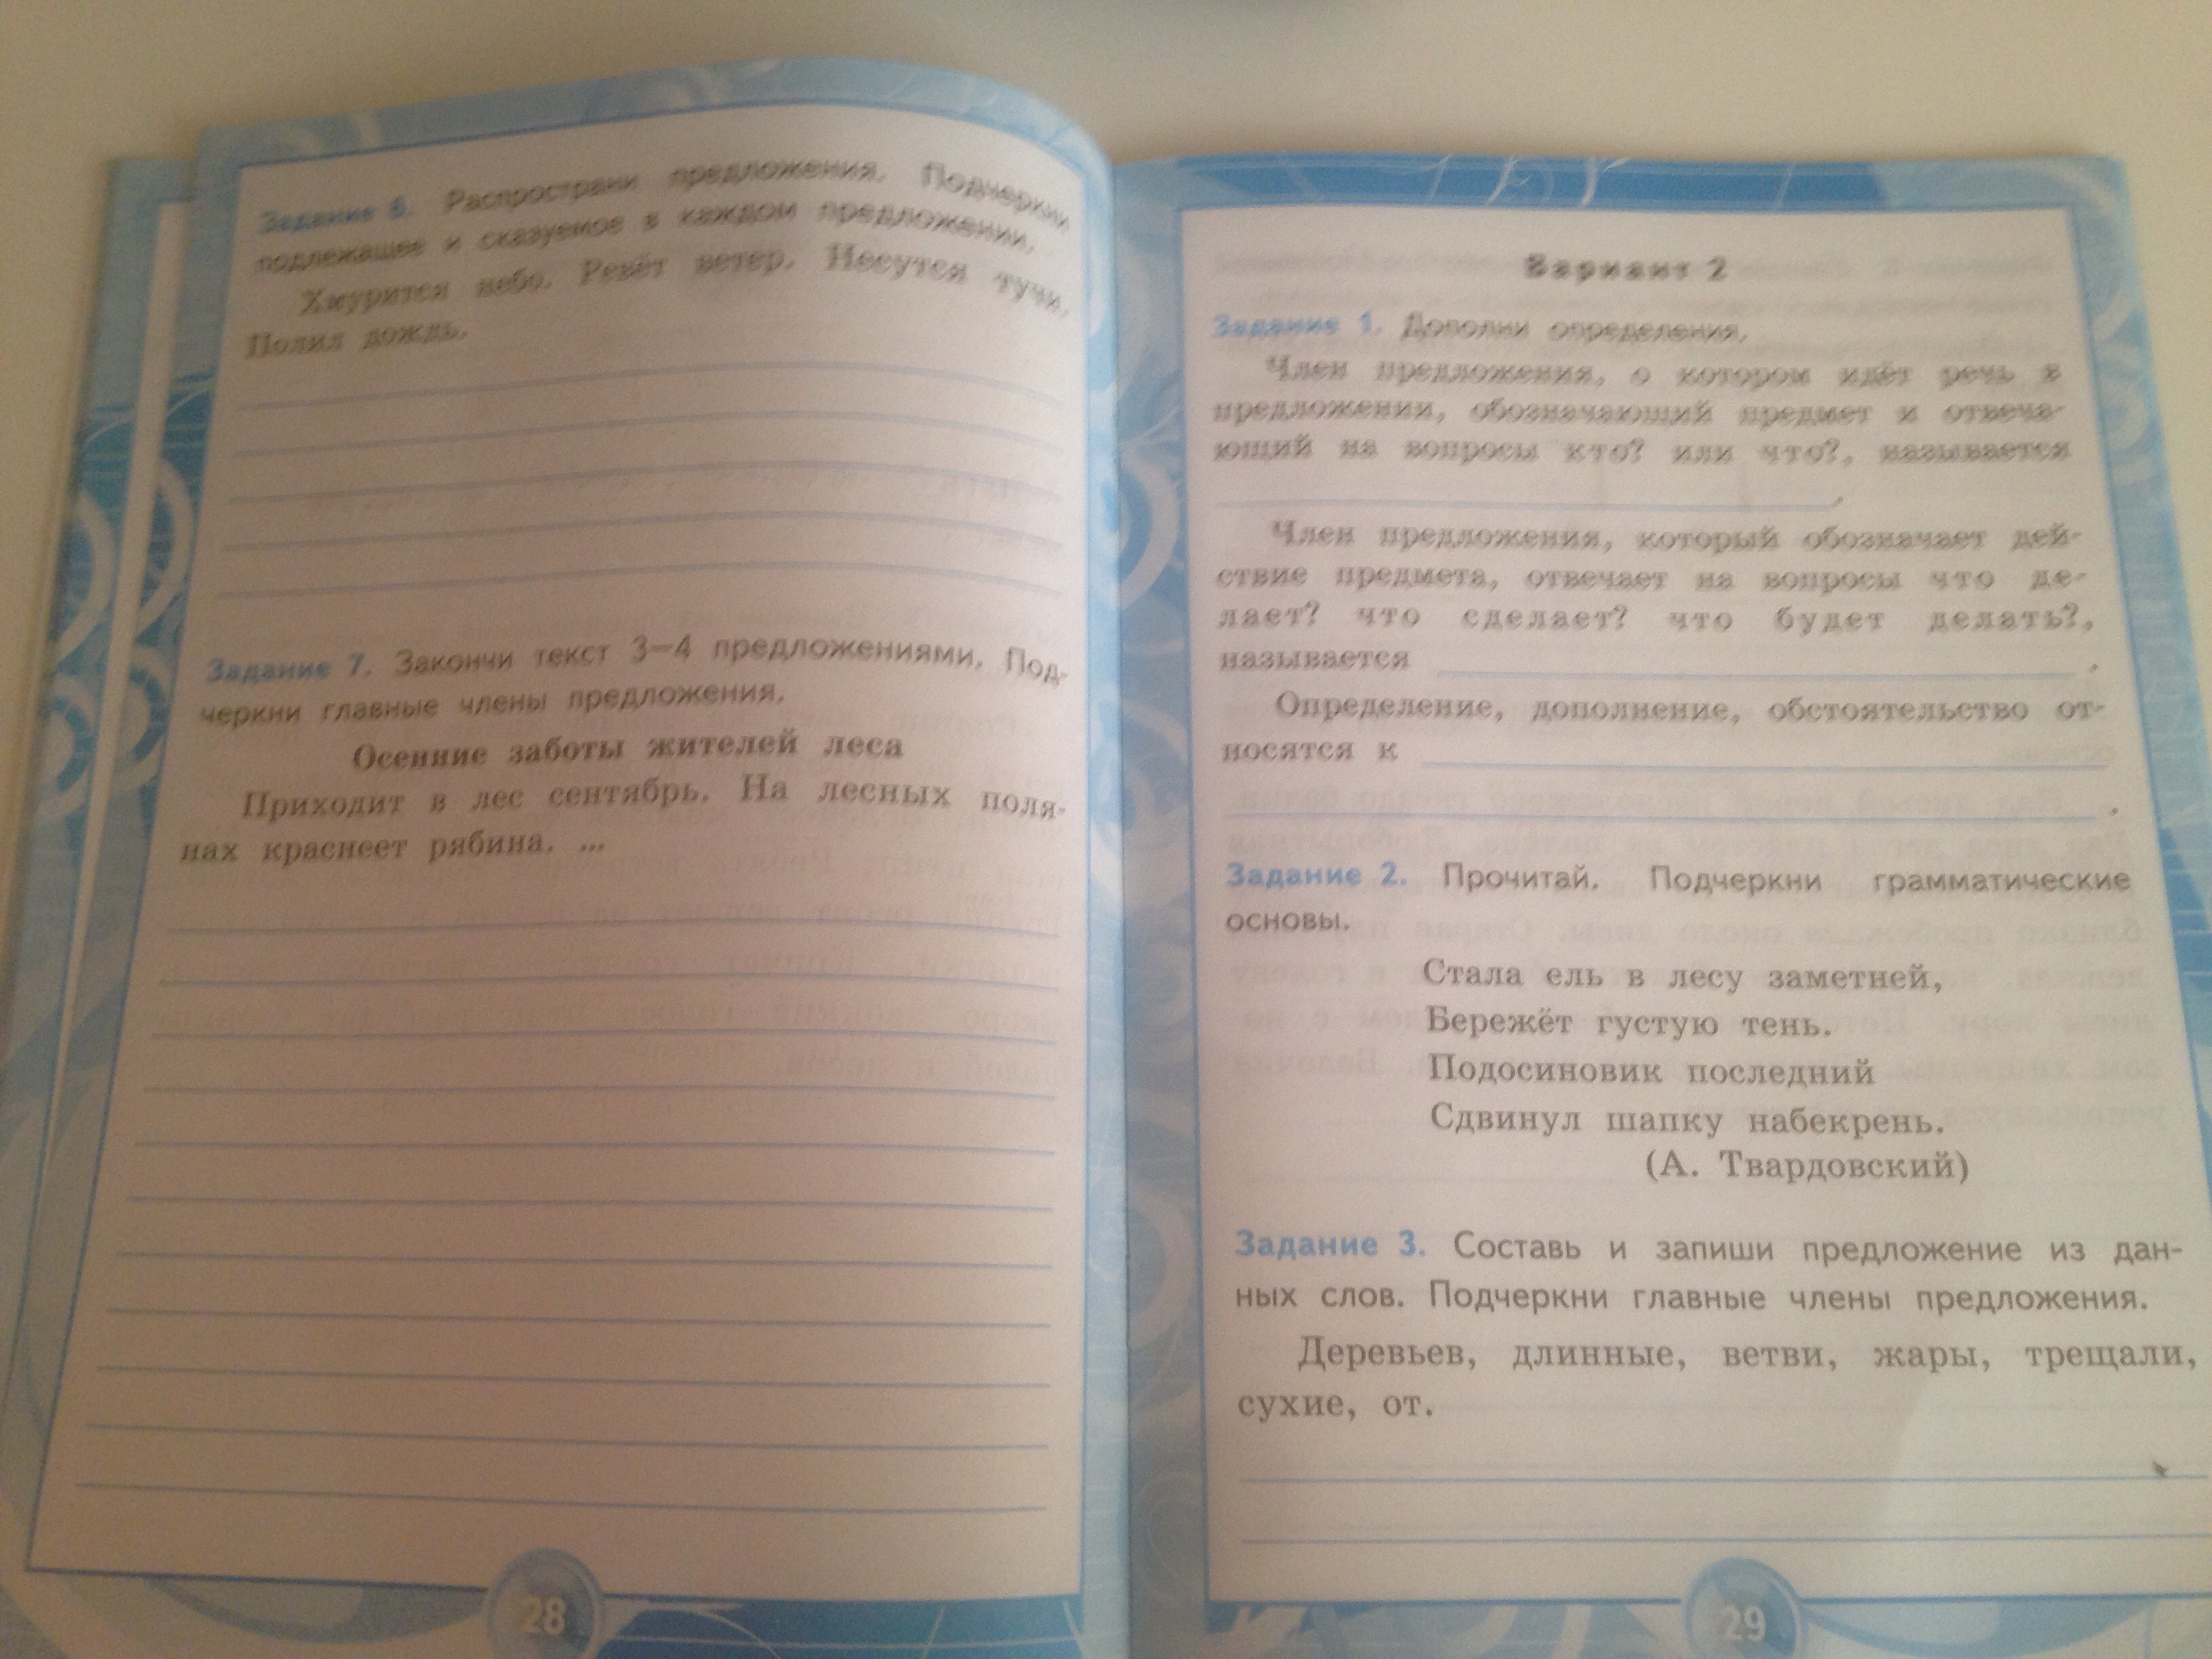 Задание 6. Распространи предложения. Подчеркни
подлежащее и сказуемое в каждом предложении.
Хмурится небо. Ревёт ветер. Несутся тучи.
Полил дождь.
Задание 7. Закончи текст 3—4 предложениями. Под-
черкни главные члены предложения.
Осенние заботы жителей леса
Приходит в лес сентябрь. На лесных поля-
нах краснеет рябина. ...
28
Вариант 2
Задание 1. Дополни определения.
Член предложения, о котором идёт речь в
предложении, обозначающий предмет и отвеча-
ющий на вопросы кто? или что?, называется
.
Член предложения, который обозначает дей-
ствие предмета, отвечает на вопросы что де-
лает? что сделает? что будет делать?,
называется .
Определение, дополнение, обстоятельство от-
носятся к
.
Задание 2. Прочитай. Подчеркни грамматические
основы.
Стала ель в лесу заметней,
Бережёт густую тень.
Подосиновик последний
Сдвинул шапку набекрень.
(А. Твардовский)
Задание 3. Составь и запиши предложение из дан-
ных слов. Подчеркни главные члены предложения.
Деревьев, длинные, ветви, жары, трещали,
сухие, от.
29